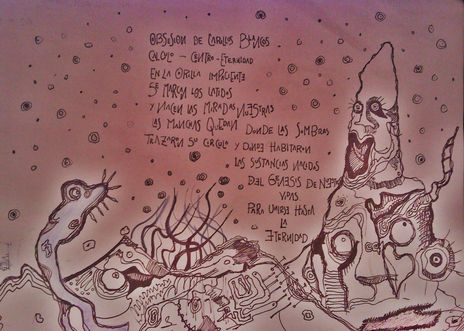 OBSESION DE CIRCULOS BLANCOS
CALCULO - CENTRO - ETERNIDAD
EN LA ORILLA IMPACIENTE
SE MARCAN LOS LATIDOS
Y NACEN LAS MIRADAS NUESTRAS
LAS MANCHAS QUEDAN DONDE LAS SOMBRAS
TRAZARON SU CIRCULO Y DONDE HABITARON
LAS SUSTANCIAS
DEL GENESIS DE
VIDAS
PARA
LA
ETERNIDAD